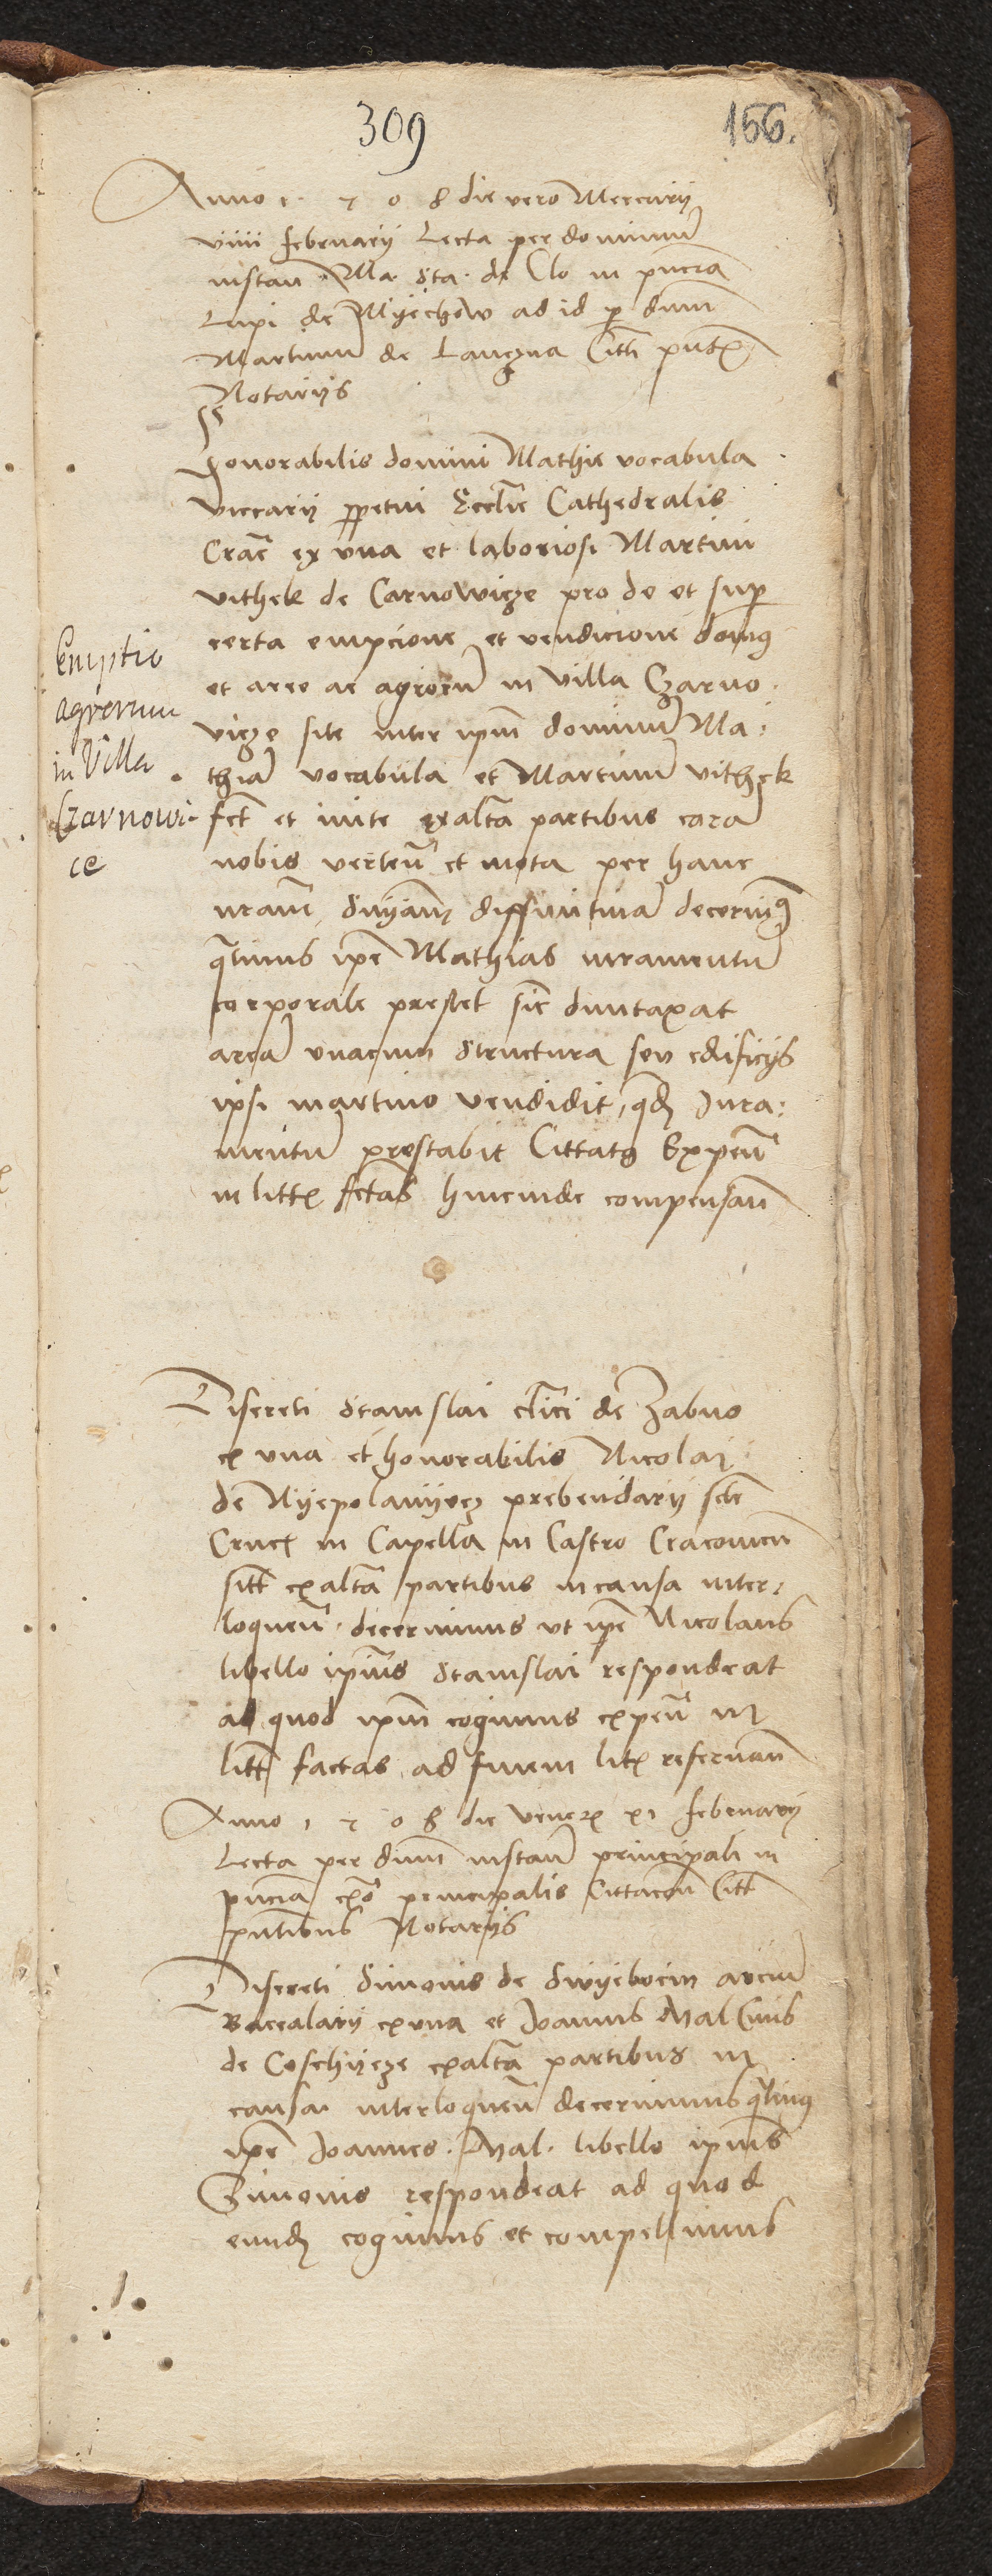 309
156.
Anno 1 5 0 8 die vero Mercurij
viiii february Lecta per dominum
instan Ma Sta de Clo in pncia
Lupi de Myechow ad id p dnm
Martinum de Lanczna Citti pntx
Notarijs
Honorabilis domini Mathie vocabula
viccarij ppetui Ecclie Cathedralis
Crac ex una et laboriosi Martini
vithek de Carnowicze pro de et sup
certa empcione et vendicione domus
et aree ac agrorum in villa Czarno
vicze site inter ipm dominum Ma:
thiam vocabula et Martinum vithek
fct et inite exalta partibus cora
nobis verten et mota per hanc
nram snyam diffinitiva decernim9
qtinus ipe Mathias iuramentum
corporale prestet sic duntaxat
aream unacum structura seu edificijs
ipsi martino vendidit, qd Jura:
mentum prestabit Cittatg Expen
in littx fctas hincinde compensan
Emptio
agrorum
in Villa
Czarnowi-
ce
Discreti Stanislai clici de Zabno
ex una et honorabilis Nicolai
de Nyepolamyecz prebendarij scte
Crucx in Capella in Castro Cracovien
sitt exalta partibus in causa inter:
loquen decernimus ut ipe Nicolaus
libello ipius Stanislai respondeat
ad quod ipm cogimus expen in
litt factas ad finem litx reservan
Anno 1 5 0 8 die venerx xi february
Lecta per dnm instan principali in
pncia exo principalis Cittacon Citt
pntibus Notarijs
Discreti Simonis de Swyeboczin arcium
Baccalarij exuna et Joannis Mal
de Coschycze exalta partibus in
causa interloquen decernimus qtinus
ipe Joannes Mal libello ipius
Simonis respondeat ad quod
eundz cogimus et compellimus